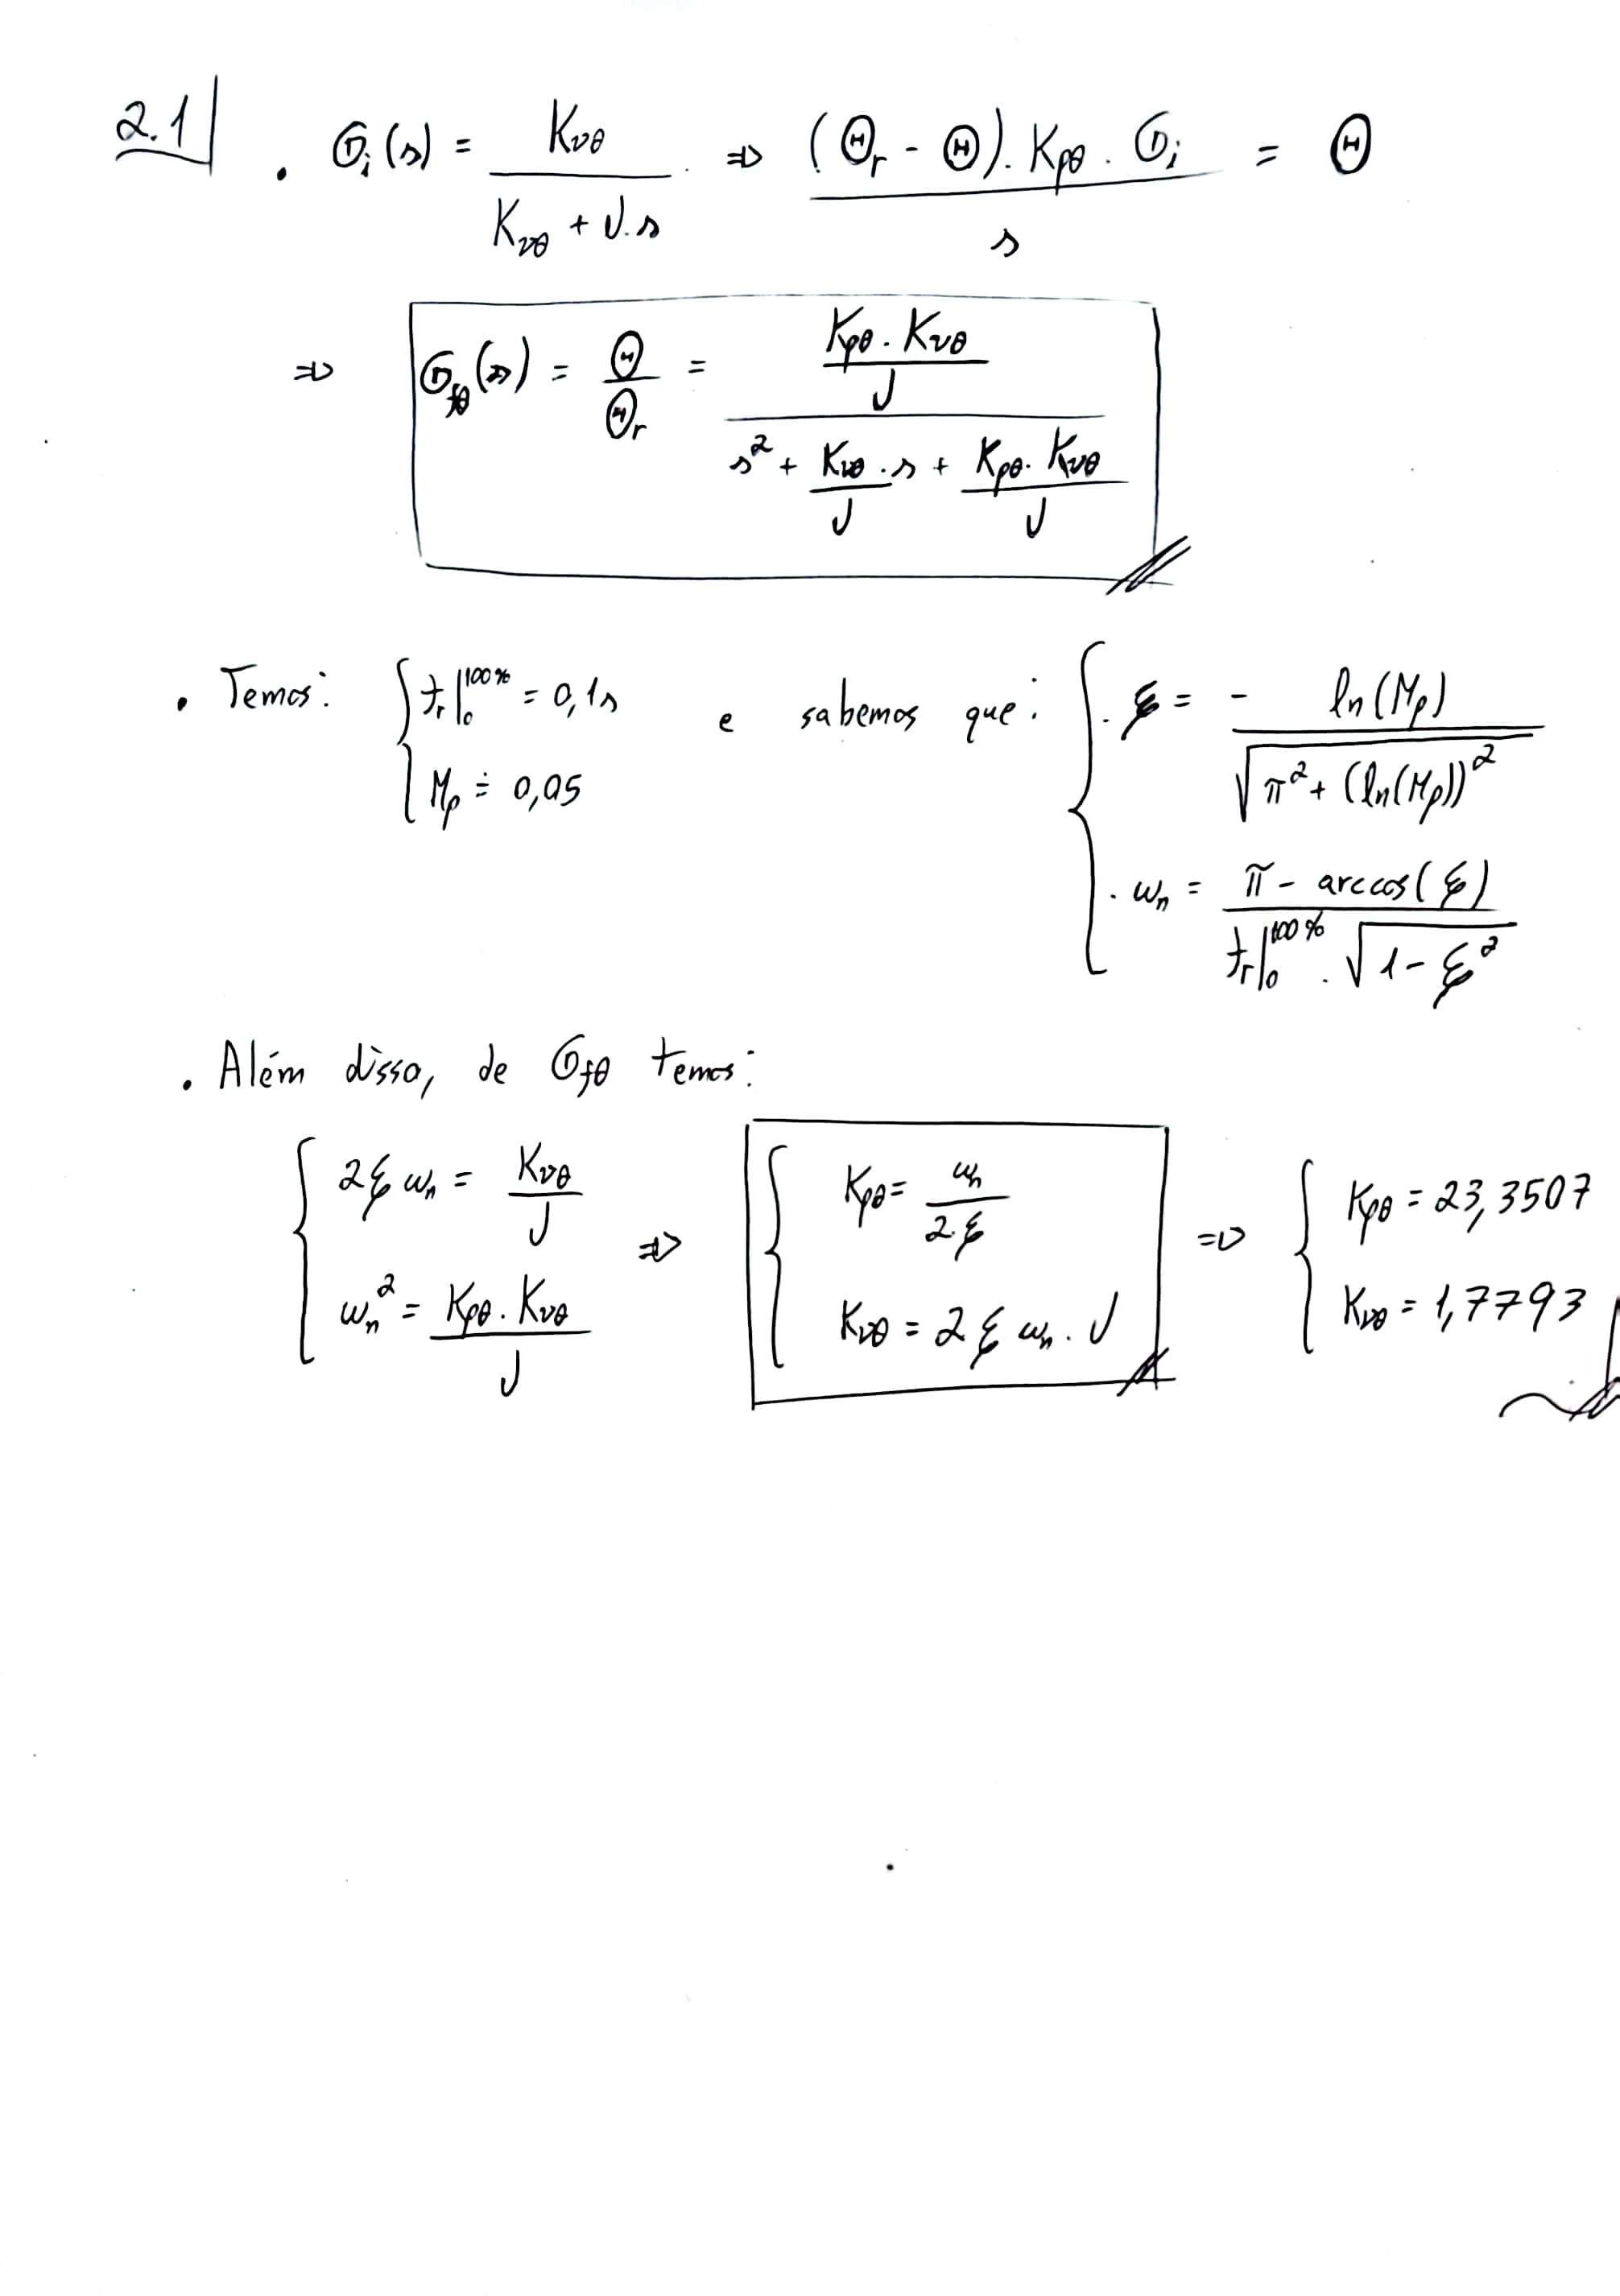 2.1
. G_i(s) = K_vθ / (K_vθ + J.s) ⇒ (Θ_r - Θ). K_pθ . G_i / s = Θ
⇒ G_fθ(s) = Θ / Θ_r = (K_pθ . K_vθ / J) / (s² + K_vθ / J . s + K_pθ . K_vθ / J)
. Temos: { t_r|_0^100% = 0,1s
M_p = 0,05
e sabemos que: { . ξ = - ln(M_p) / √(π² + (ln(M_p))²)
. ω_n = π - arccos(ξ) / (t_r|_0^100% . √(1 - ξ²))
. Além disso, de G_fθ temos:
{ 2ξω_n = K_vθ / J
ω_n² = K_pθ . K_vθ / J
⇒ { K_pθ = ω_n / 2.ξ
K_vθ = 2ξω_n . J
⇒ { K_pθ = 23,3507
K_vθ = 1,7793